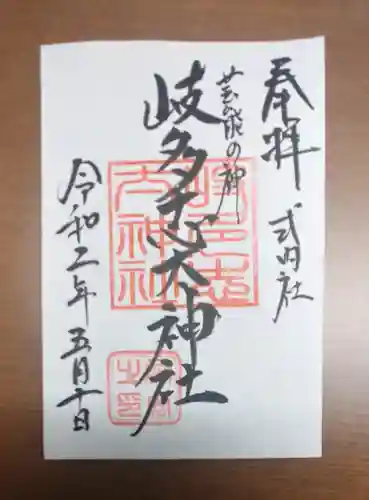 奉拝
式内社
芸能の神
岐多志太神社
令和二年五月十日